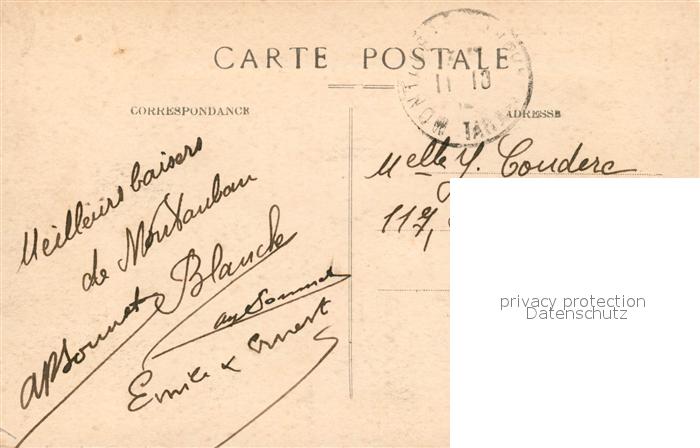 CARTE POSTALE
CORRESPONDANCE
ADRESSE
11 13
Meilleurs baisers
de Montauban
Blanche
ABonnet
Emile & Ernest
Melle Y. Couderc
117,
privacy protection
Datenschutz